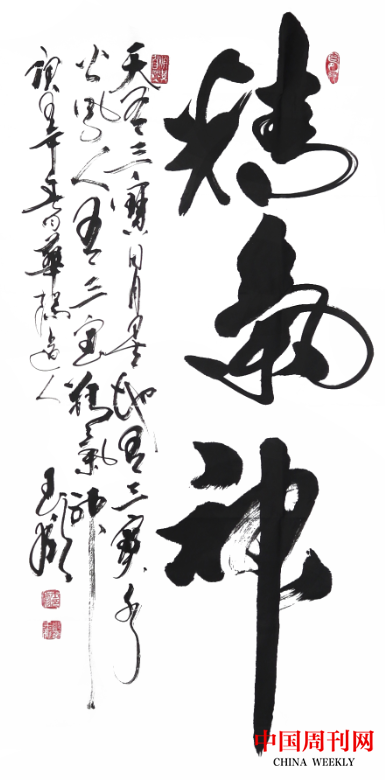 精氣神
天有三寶日月星地有三寶水
火風人有三宝精氣神
年春華人
王
中国周刊网
CHINA WEEKLY